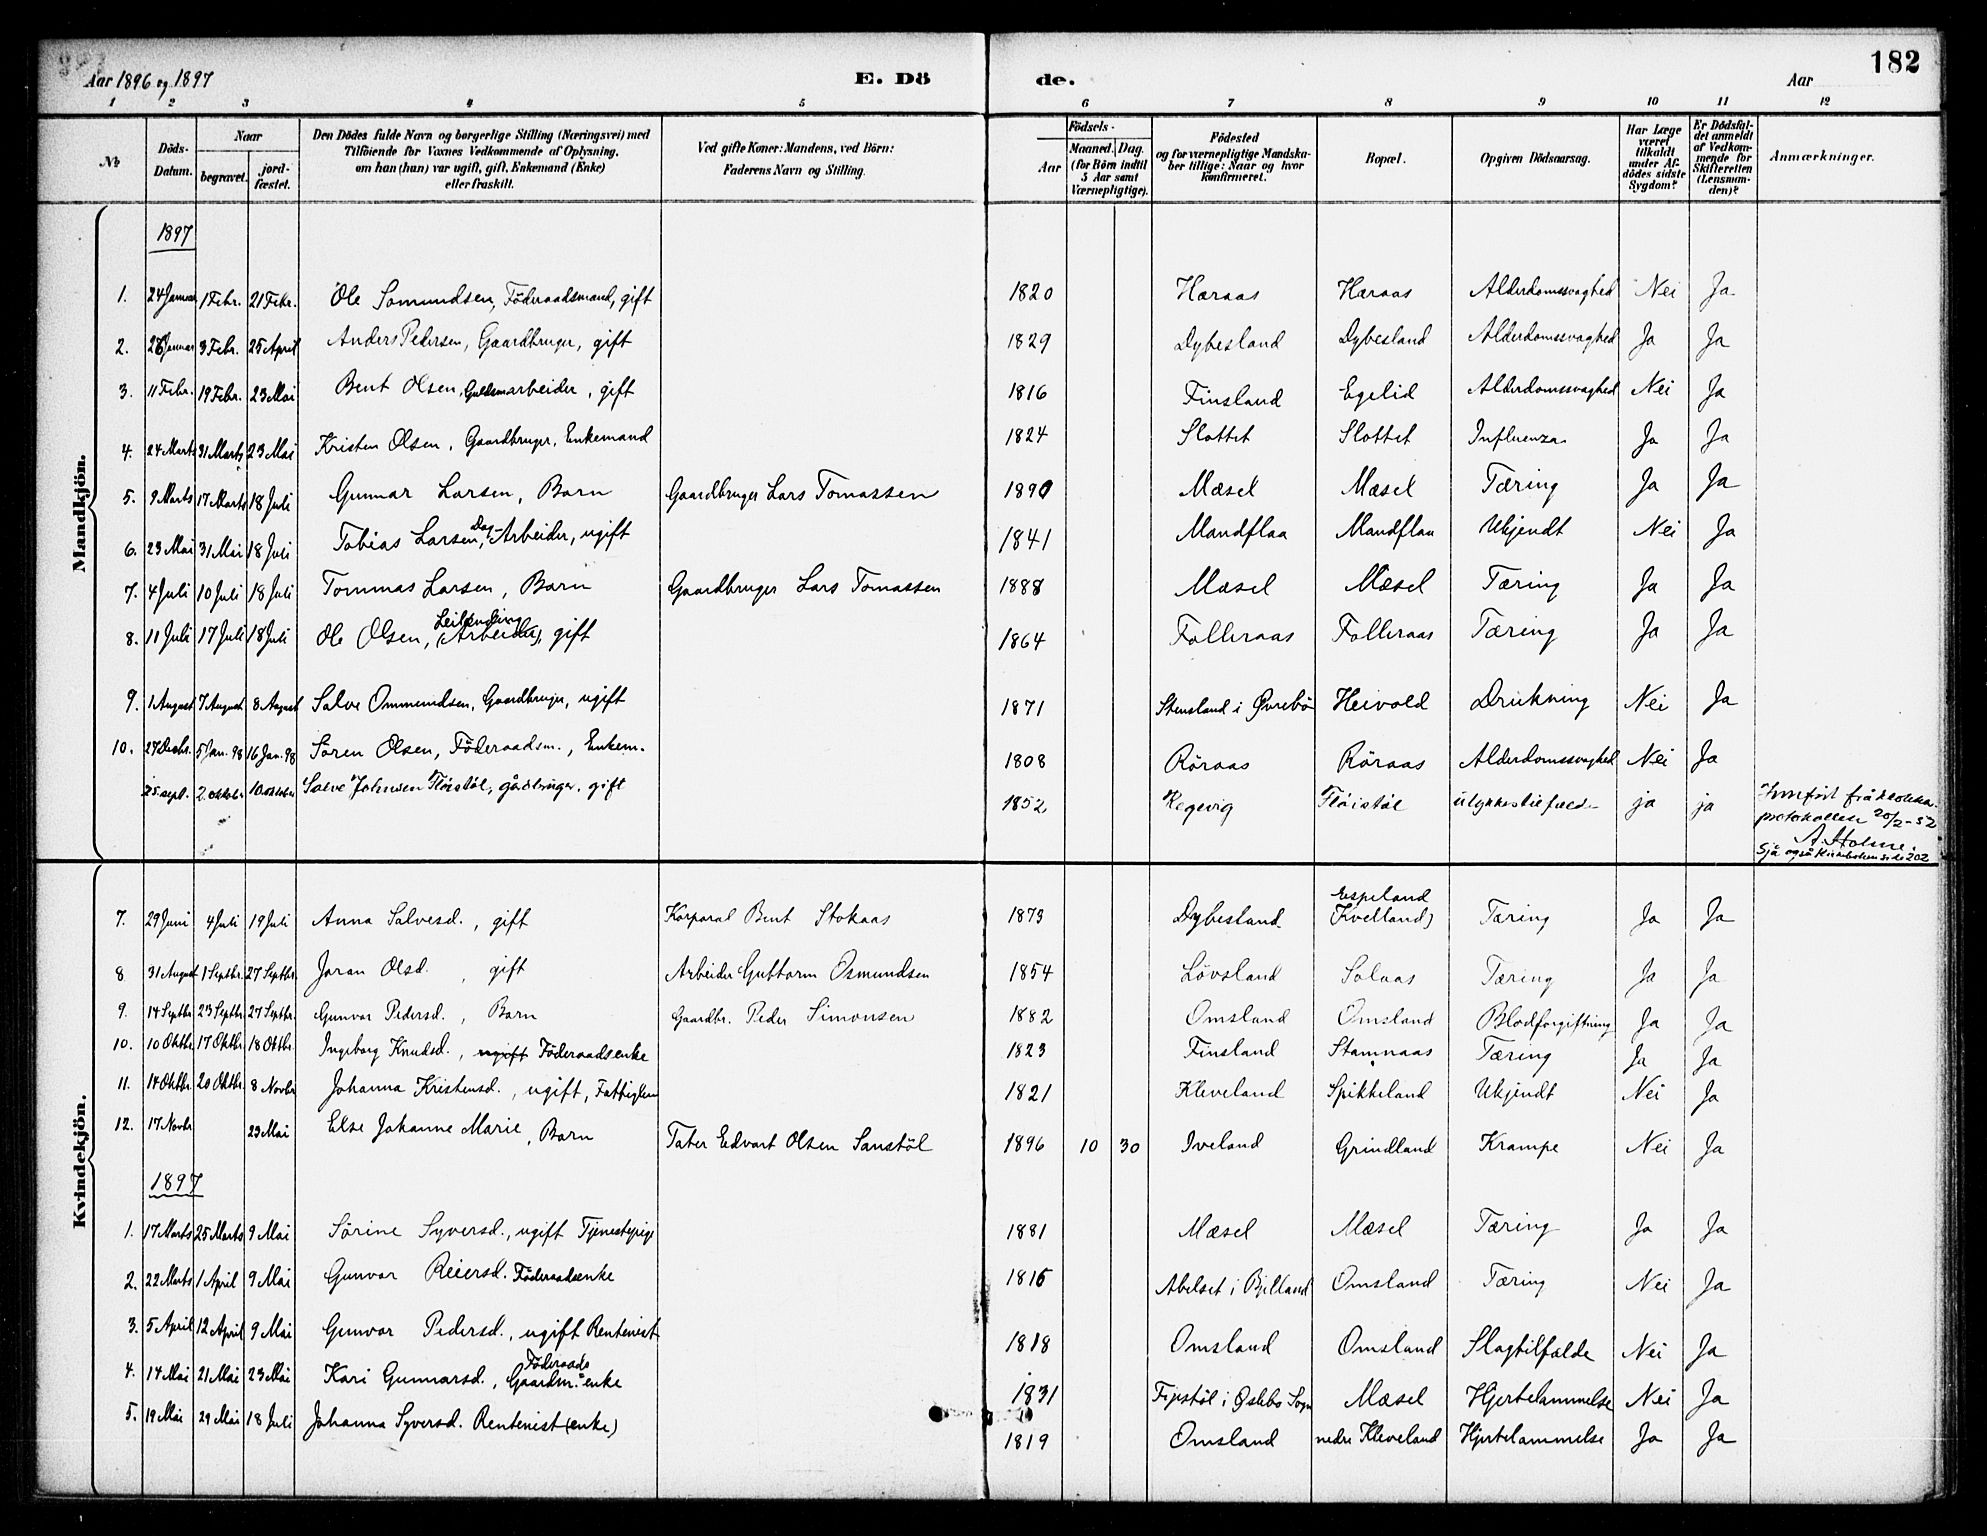 182
Aar 1896 og 1897 E. Dö de. Aar
1 2 3 4 5 6 7 8 9 10 11 12
No Döds-Datum. Naar begravet. jord-fæstet. Den Dödes fulde Navn og borgerlige Stilling (Næringsvei) med Tilföiende for Voxnes Vedkommende af Oplysning, om han (hun) var ugift, gift, Enkemand (Enke) eller fraskilt. Ved gifte Koner: Mandens, ved Börn: Faderens Navn og Stilling. Födsels- Aar Maaned. Dag. (for Börn indtil 5 Aar samt Værnepligtige). Födested og for værnepligtige Mandskaber tillige: Naar og hvor konfirmeret. Bopæl. Opgiven Dödsaarsag. Har Læge været tilkaldt under Afdödes sidste Sygdom? Er Dödsfaldet anmeldt af Vedkommende for Skifteretten (Lensmanden)? Anmærkninger.
Mandkjön.
1897
1. 24 Januar 1 Febr. 21 Febr. Ole Somundsen, Föderaadsmand, gift 1820 Haraas Haraas Alderdomssvaghed Nei Ja
2. 26 Januar 3 Febr. 25 April Anders Pedersen, Gaardbruger, gift 1829 Dybesland Dybesland Alderdomssvaghed Ja Ja
3. 11 Febr. 19 Febr. 23 Mai Bent Olsen, Guldsmarbeider, gift 1816 Finsland Egelid Alderdomssvaghed Nei Ja
4. 24 Marts 31 Marts 23 Mai Kristen Olsen, Gaardbruger, Enkemand 1824 Slottet Slottet Influenza Ja Ja
5. 9 Marts 17 Marts 18 Juli Gunnar Larsen, Barn Gaardbruger Lars Tomassen 1890 Mæsel Mæsel Tæring Ja Ja
6. 23 Mai 31 Mai 18 Juli Tobias Larsen, Dag-Arbeider, ugift 1841 Mandflaa Mandflaa Ukjendt Nei Ja
7. 4 Juli 10 Juli 18 Juli Tommas Larsen, Barn Gaardbruger Lars Tomassen 1888 Mæsel Mæsel Tæring Ja Ja
8. 11 Juli 17 Juli 18 Juli Ole Olsen, Leilending (Arbeider), gift 1864 Folleraas Folleraas Tæring Ja Ja
9. 1 August 7 August 8 August Salve Ommundsen, Gaardbruger, ugift 1871 Stensland i Øvrebö Heivold Drukning Nei Ja
10. 27 Decbr. 5 Jan. 98 16 Jan. 98 Sören Olsen, Föderaadsm., Enkem. 1808 Röraas Röraas Alderdomssvaghed Nei Ja
25. sept. 2. oktober 10 oktober Salve Johnsen Fløistøl, gårdbruger, gift 1852 Regevig Fløistøl ulykkestilfæld ja ja Innført frå klokkar-
protokollen 20/2-52
A. Holme.
Sjå også kirkeboken side 202
Kvindekjön.
7. 29 Juni 4 Juli 19 Juli Anna Salvesd., gift Korporal Bent Stokaas 1873 Dybesland Espeland (Kvelland) Tæring Ja Ja
8 31 August 1 Septbr. 27 Septbr. Joran Olsd., gift Arbeider Guttorm Osmundsen 1854 Lövsland Solaas Tæring Ja Ja
9. 14 Septbr 23 Septbr 27 Septbr. Gunvor Pedersd., Barn Gaardbr. Peder Simonsen 1882 Omsland Omsland Blodforgiftning Ja Ja
10. 10 Oktbr. 17 Oktbr. 18 Oktbr. Ingeborg Knudsd., ugift Föderaadsenke 1823 Finsland Stamnaas Tæring Ja Ja
11. 14 Oktbr. 20 Oktbr. 8 Novbr Johanna Kristensd., ugift, Fattiglem 1821 Kleveland Spikkeland Ukjendt Nei Ja
12. 17 Novbr 23 Mai Else Johanne Marie, Barn Tater Edvart Olsen Sanstöl 1896 10 30 Iveland Grindland Krampe Nei Ja
1897
1. 17 Marts 25 Marts 9 Mai Sörine Syversd., ugift Tjenestepige 1881 Mæsel Mæsel Tæring Ja Ja
2. 22 Marts 1 April 9 Mai Gunvor Reiersd. Föderaadsenke 1815 Abelset i Bjelland Omsland Tæring Nei Ja
3. 5 April 12 April 9 Mai Gunvor Pedersd., ugift Rentenist 1818 Omsland Omsland Slagtilfælde Nei Ja
4. 14 Mai 21 Mai 23 Mai Kari Gunnarsd., Föderaads Gaardm. enke 1831 Mæsel Hjertelammelse Nei Ja
5. 19 Mai 29 Mai 18 Juli Johanna Syversd. Rentenist (enke) 1819 Omsland nedre Kleveland Hjertelammelse Ja Ja